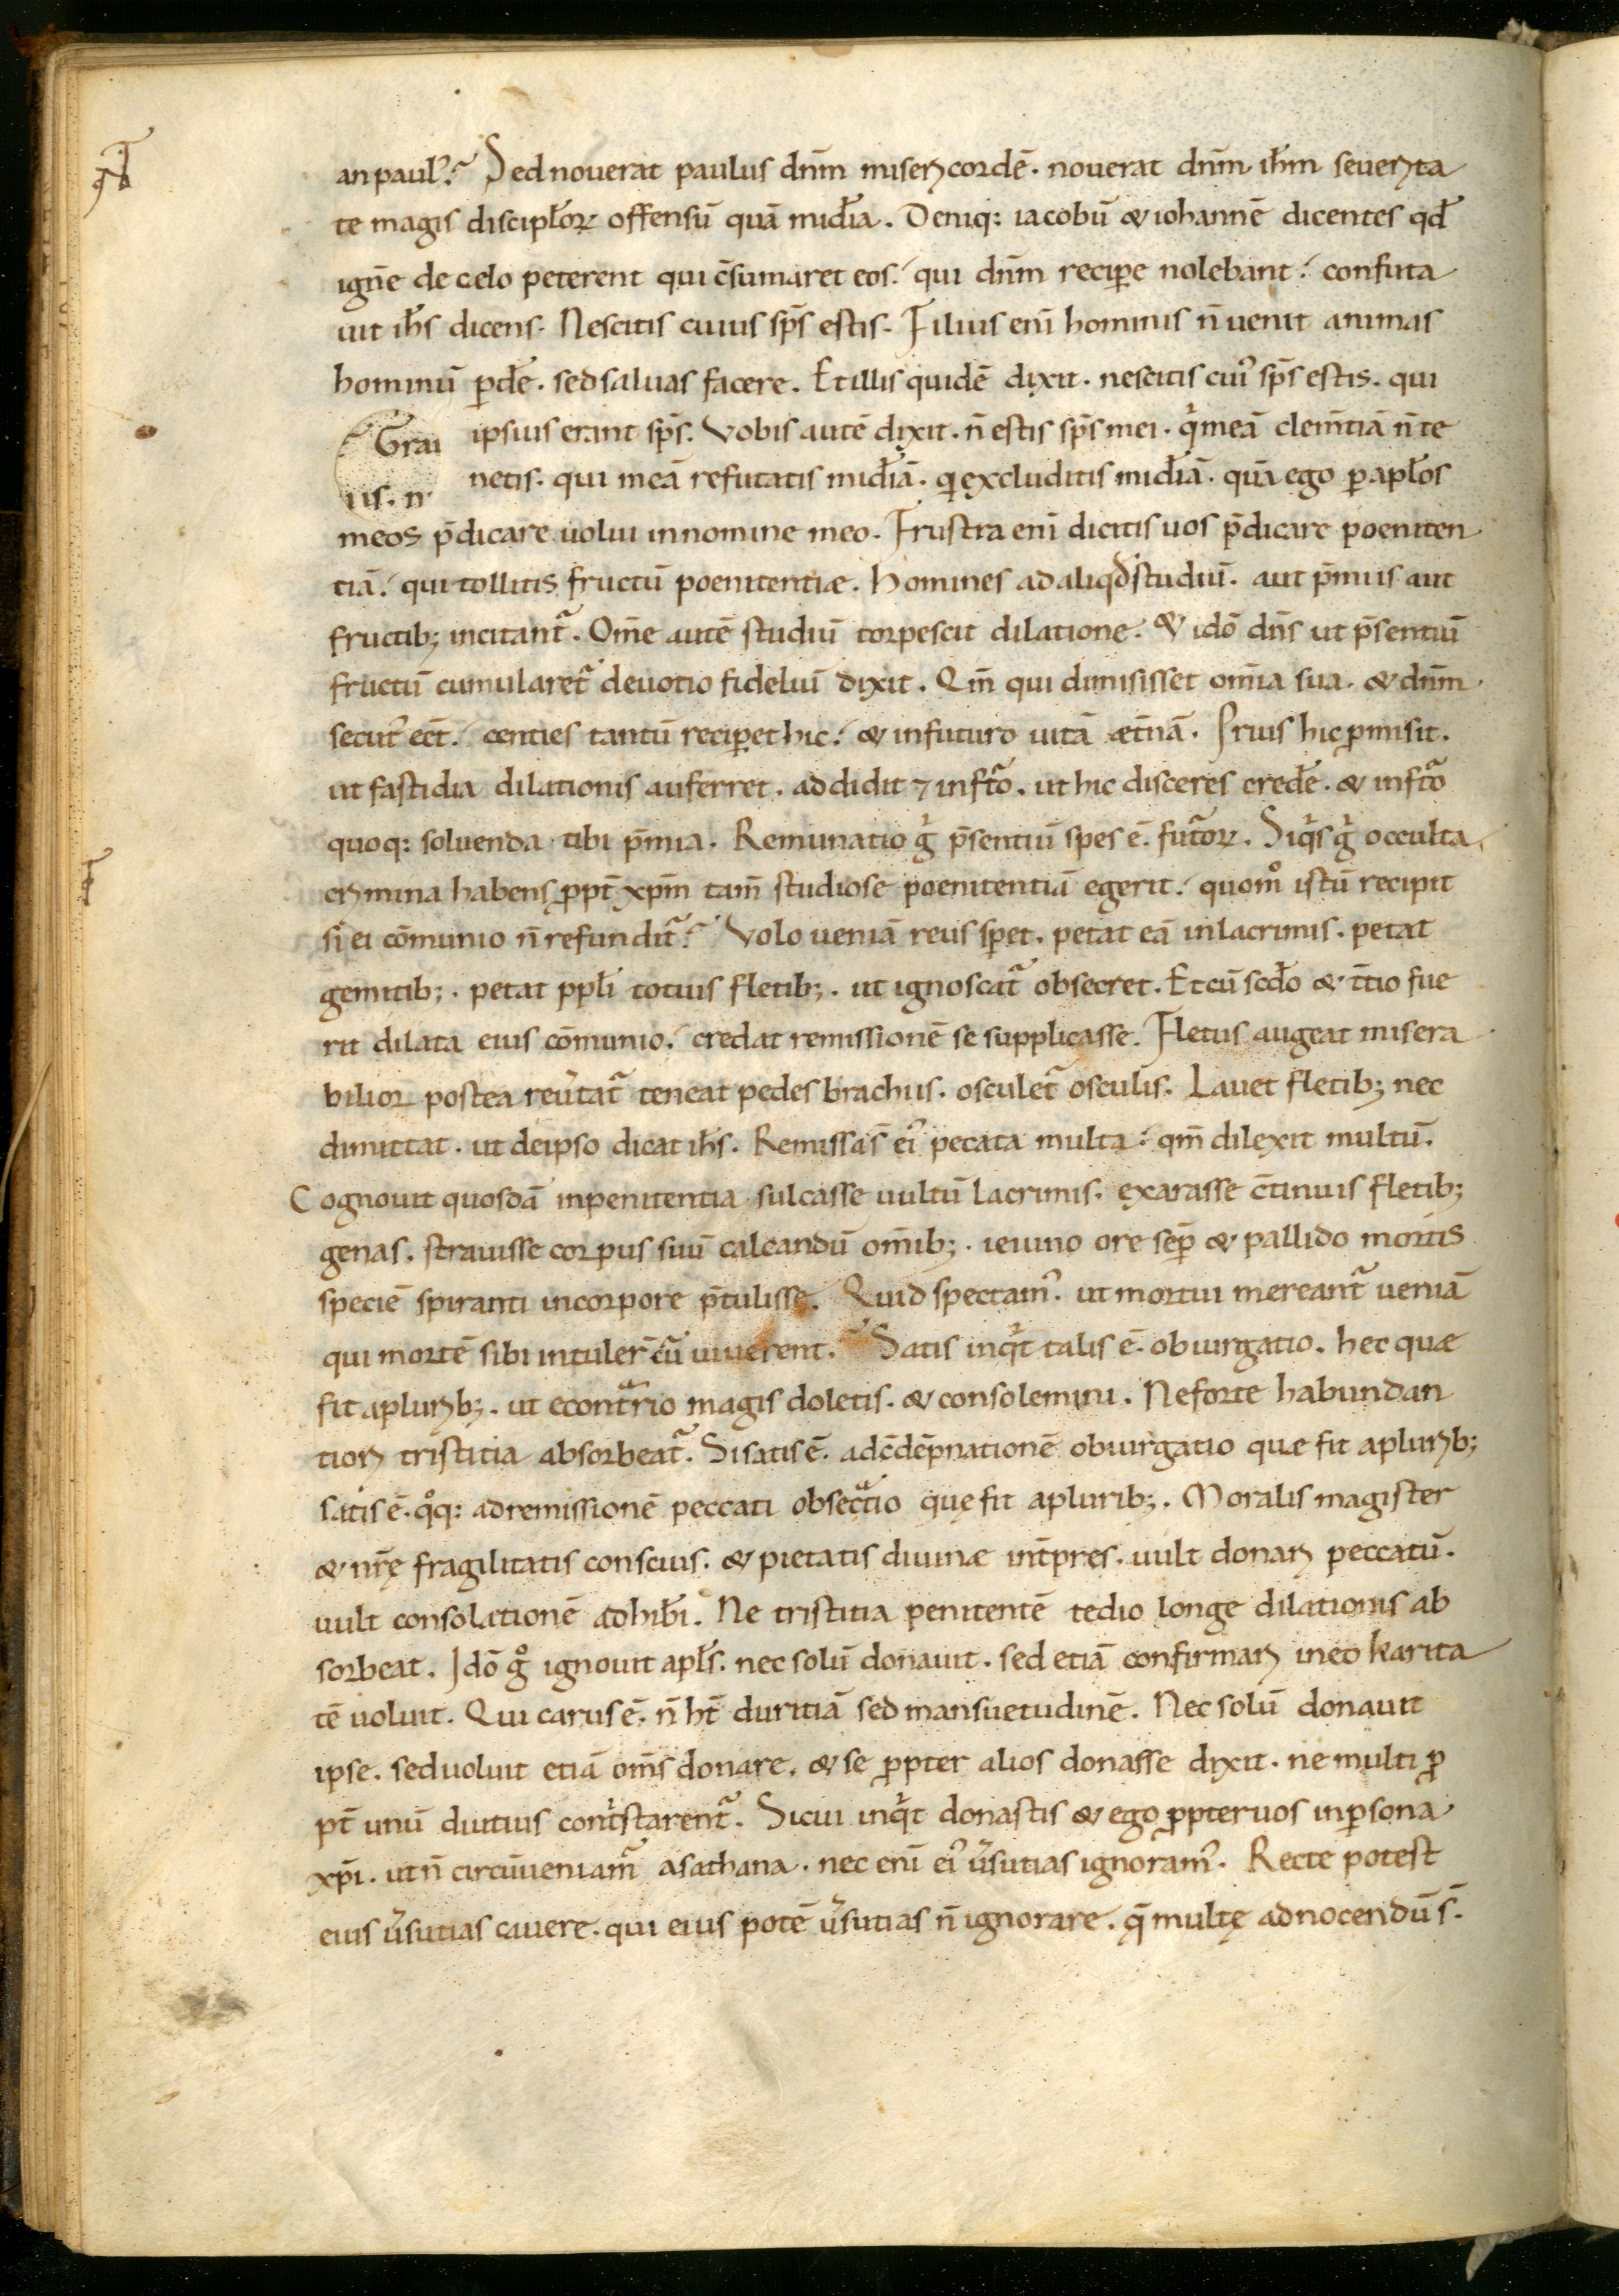 an paulꝰ? Sed nouerat paulus dnm̄ misericordē. nouerat dnm̄ ihm̄ seuerita
te magis discipłoꝝ offensū quā midīa. Deniq: iacobū & iohannē dicentes qđ
ignē de celo peterent qui c̄sumaret eos. qui dnm̄ reciꝑe nolebant. confuta
uit ihs̄ dicens. Nescitis cuius sp̄s estis. Filius enī hominis n̄ uenit animas
hominū ꝑdēe. sed saluas facere. Et illis quidē dixit. nescitis cuiꝰ sp̄s estis. qui
ipsius erant sp̄s. Vobis autē dixit. n̄ estis sp̄s mei. qͥ meā clem̄tiā n̄ te
netis. qui meā refutatis midīā. qͥ excluditis midīā. quā ego ꝑ apłos
meos p̄dicare uolui in nomine meo. Frustra enī dicitis uos p̄dicare poeniten
tiā. qui tollitis fructū poenitentiæ. Homines ad aliqđ studiū. aut p̄miis aut
fructib; incitantᷣ. Om̄e autē studiū torpescit dilatione. & idō dn̄s ut p̄sentiū
fructū cumularetᷣ deuotio fideliū dixit. Qm̄ qui dimisisset om̄ia sua. & dnm̄
secutꝰ eēt. centies tantū reciꝑet hic. & in futuro uitā æt̄nā. Prius hic ꝓmisit.
ut fastidia dilationis auferret. addidit ⁊ in fͭto. ut hic disceres credēe. & in fͭto
quoq: soluenda tibi p̄mia. Remun̄atio gͥ p̄sentiū spes ē. futᷓoꝝ. Siqͥs gͥ occulta
crimina habens ꝓpt̄ xpm̄ tam̄ studiose poenitentiā egerit. quomͦ istū recipit
si ei cōmunio n̄ refunditᷣ? Volo ueniā reus sꝑet. petat eā in lacrimis. petat
gemitib;. petat ppłi totius fletib;. ut ignoscatᷣ obsecret. Et cū scđo & t̄tio fue
rit dilata eius cōmunio. credat remissionē se supplicasse. Fletus augeat misera
bilior postea reu̅tatᷣ teneat pedes brachiis. osculetᷣ osculis. Lauet fletib; nec
dimittat. ut de ipso dicat ihs̄. Remissa s̄ eiꝰ pecata multa. qm̄ dilexit multū.
Cognouit quosdā in penitentia sulcasse uultū lacrimis. exarasse c̄tinuis fletib;
genas. strauisse corpus suū calcandū om̄ib;. ieiuno ore seꝑ & pallido mortis
speciē spiranti in corpore p̄tulisse. Quid spectamꝰ. ut mortui mereantᷣ ueniā
qui mortē sibi intuler̄ cū uiuerent? Satis inqͥt talis ē. obiurgatio. hec quæ
fit a plurib;. ut econtᷓrio magis doletis. & consolemini. Ne forte habundan
tiori tristitia absorbeatᷣ. Si satis ē. ad c̄dēpnationē obiurgatio quæ fit a plurib;
satis ē. qͦq: ad remissionē peccati obsecᷓtio quę fit a plurib;. Moralis magister
& nr̄ę fragilitatis conscius. & pietatis diuinæ int̄pres. uult donari peccatū.
uult consolationē adhiberi. Ne tristitia penitentē tedio longe dilationis ab
sorbeat. Idō gͦ ignouit apłs. nec solū donauit. sed etiā confirmari in eo karita
tē uoluit. Qui carus ē. n̄ ht̄ duritiā sed mansuetudinē. Nec solū donauit
ipse. sed uoluit etiā om̄s donare. & se ꝓpter alios donasse dixit. ne multi ꝓ
pt̄ unū diutius contͥstarentᷣ. Sicui inqͥt donastis & ego ꝓpter uos in ꝑsona
xpi̅. ut n̄ circūueniamᷣ a sathana. nec enī eiꝰ u̅sutias ignoramꝰ. Recte potest
eius u̅sutias cauere. qui eius potē u̅sutias n̄ ignorare. qͣ multę ad nocendū s̄.